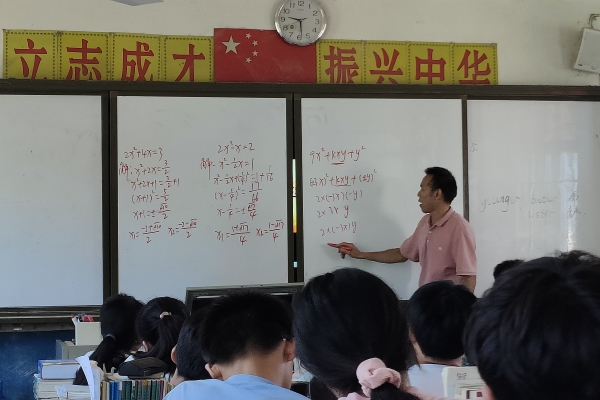 立志成才 振兴中华
2x²+4x=3
解: x²+2x=3/2
x²+2x+1=3/2+1
(x+1)²=5/2
x+1=±√10/2
x₁=(-2+√10)/2 x₂=(-2-√10)/2
2x²-x=2
解: x²-1/2x=1
x²-1/2x+(1/4)²=1+1/16
(x-1/4)²=17/16
x-1/4=±√17/4
x₁=(1+√17)/4 x₂=(1-√17)/4
9x²+kxy+y²
x²+kxy+(±y)²
2×(-3x)(-y)
2×3x y
2×(-3x)y